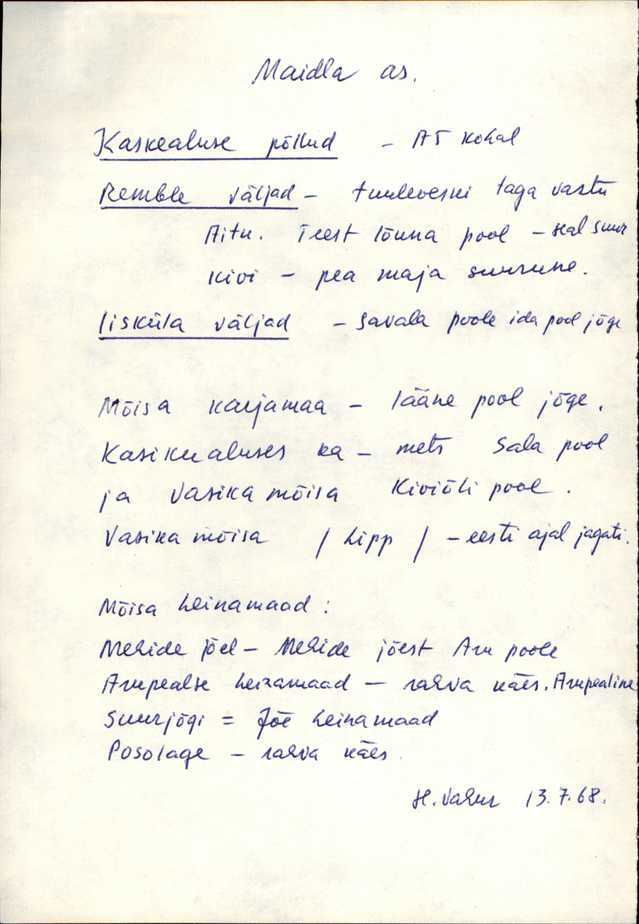 Maidla as.
Kaskealuse põllud - AT kohal
Remble väljad - tuuleveski taga vastu
Aitu. Teest lõuna pool - seal suur
kivi - pea maja suurune.
Iisküla väljad - Savala poole ida pool jõge
Mõisa karjamaa - lääne pool jõge.
Kasikualuses ka - mets Sala pool
ja Vasika mõisa Kiviõli pool.
Vasika mõisa / Lipp / - eesti ajal jagati.
Mõisa heinamaad:
Meriide jõel - Meriide jõest Aru poole
Arupealse heinamaad - rahva käes. Arupealine
Suurjõgi = Jõe heinamaad
Posolage - rahva käes.
13.7.68.